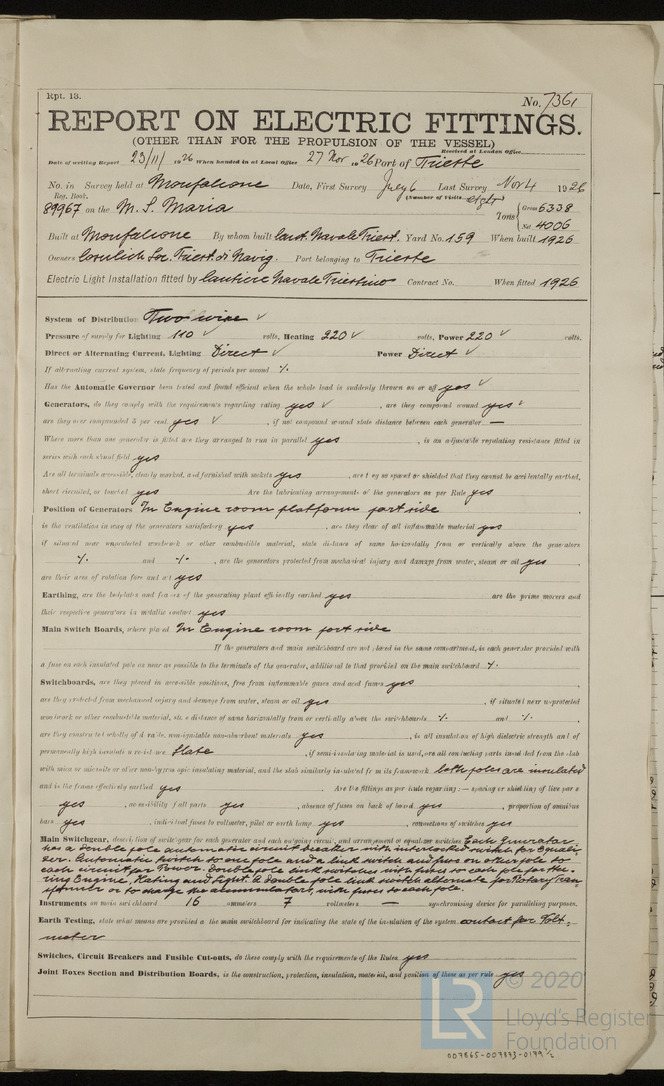 Rpt. 13.
No. 7361
REPORT ON ELECTRIC FITTINGS.
(OTHER THAN FOR THE PROPULSION OF THE VESSEL)
Received at London Office
Date of writing Report 23/11/ 1926 When handed in at Local Office 27 Nov 1926 Port of Trieste
No. in Survey held at Monfalcone Date, First Survey July 6 Last Survey Nov 4 1926
Reg. Book. (Number of Visits eight)
89967 on the M. S. Maria Tons { Gross 6338
Net 4006
Built at Monfalcone By whom built Cant. Navale Triest. Yard No. 159 When built 1926
Owners Cosulich Soc. Triest. di Navig. Port belonging to Trieste
Electric Light Installation fitted by Cantiere Navale Triestino Contract No. When fitted 1926
System of Distribution Two wire ✓
Pressure of supply for Lighting 110 ✓ volts, Heating 220 ✓ volts, Power 220 ✓ volts.
Direct or Alternating Current, Lighting Direct ✓ Power Direct ✓
If alternating current system, state frequency of periods per second %
Has the Automatic Governor been tested and found efficient when the whole load is suddenly thrown on or off yes ✓
Generators, do they comply with the requirements regarding rating yes ✓ , are they compound wound yes ✓
are they over compounded 5 per cent. yes ✓ , if not compound wound state distance between each generator —
Where more than one generator is fitted are they arranged to run in parallel yes , is an adjustable regulating resistance fitted in
series with each shunt field yes
Are all terminals accessible, clearly marked, and furnished with sockets yes , are they so spaced or shielded that they cannot be accidentally earthed,
short circuited, or touched yes Are the lubricating arrangements of the generators as per Rule yes
Position of Generators In Engine room platform port side
is the ventilation in way of the generators satisfactory yes , are they clear of all inflammable material yes
if situated near unprotected woodwork or other combustible material, state distance of same horizontally from or vertically above the generators
% and % , are the generators protected from mechanical injury and damage from water, steam or oil yes
are their axes of rotation fore and aft yes
Earthing, are the bedplates and frames of the generating plant efficiently earthed yes are the prime movers and
their respective generators in metallic contact yes
Main Switch Boards, where placed In Engine room port side
If the generators and main switchboard are not placed in the same compartment, is each generator provided with
a fuse on each insulated pole as near as possible to the terminals of the generator, additional to that provided on the main switchboard %
Switchboards, are they placed in accessible positions, free from inflammable gases and acid fumes yes
are they protected from mechanical injury and damage from water, steam or oil yes , if situated near unprotected
woodwork or other combustible material, state distance of same horizontally from or vertically above the switchboards % and %
are they constructed wholly of durable, non-ignitable non-absorbent materials yes , is all insulation of high dielectric strength and of
permanently high insulation resistance Slate , if semi-insulating material is used, are all conducting parts insulated from the slab
with mica or micanite or other non-hygroscopic insulating material, and the slab similarly insulated from its framework both poles are insulated
and is the frame effectively earthed yes Are the fittings as per Rule regarding :— spacing or shielding of live parts
yes , accessibility of all parts yes , absence of fuses on back of board yes , proportion of omnibus
bars yes , individual fuses to voltmeter, pilot or earth lamp yes , connections of switches yes
Main Switchgear, description of switchgear for each generator and each outgoing circuit, and arrangement of equalizer switches Each Generator
has a double pole automatic circuit breaker with interlocked switch for Equali-
ser. Automatic switch to one pole and a link switch and fuses on other pole to
each circuit for Power. Double pole link switches with fuses to each pole for Hea-
ting Engine, Heating and Light. A double pole link switch alternate for Rotary Tran-
sformer or to charge the accumulators, with fuses to each pole.
Instruments on main switchboard 16 ammeters 7 voltmeters — synchronising device for paralleling purposes.
Earth Testing, state what means are provided at the main switchboard for indicating the state of the insulation of the system contact for Volt-
meter
Switches, Circuit Breakers and Fusible Cut-outs, do these comply with the requirements of the Rules yes
Joint Boxes Section and Distribution Boards, is the construction, protection, insulation, material, and position of these as per rule yes
© 2020
LR
Lloyd's Register
Foundation
007865-007873-0179 1/2